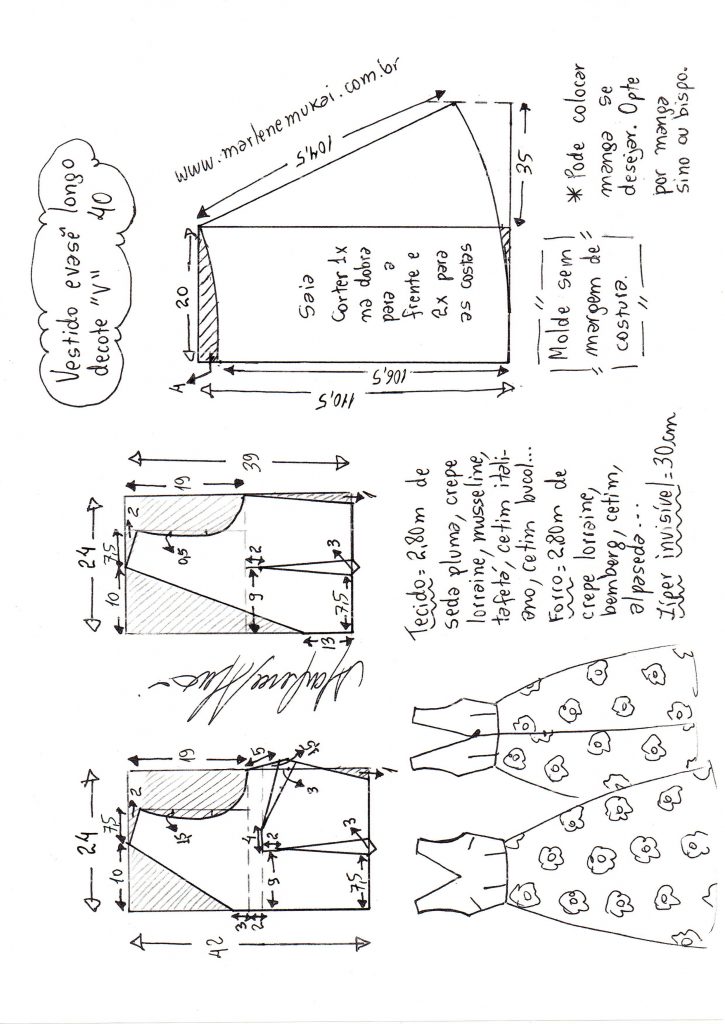 Vestido evasê longo
decote "V" 40
www.marlenemukai.com.br
24
10
7,5
2
19
1,5
3
2
9
4
2
5
3,5
3
7,5
3
1
42
24
10
7,5
2
19
0,5
9
2
13
7,5
3
1
39
4
20
110,5
106,5
104,5
35
Saia
Corter 1x
na dobra
para a
frente e
2x para
as costas
Molde sem
margem de
costura.
* Pode colocar
manga se
desejar. Opte
por manga
sino ou bispo.
Tecido = 2,80m de
seda pluma, crepe
lorraine, musseline,
tafetá, cetim itali-
ano, cetim bucol...
Forro = 2,80m de
crepe lorraine,
bemberg, cetim,
alpaseda...
Zíper invisível = 30cm